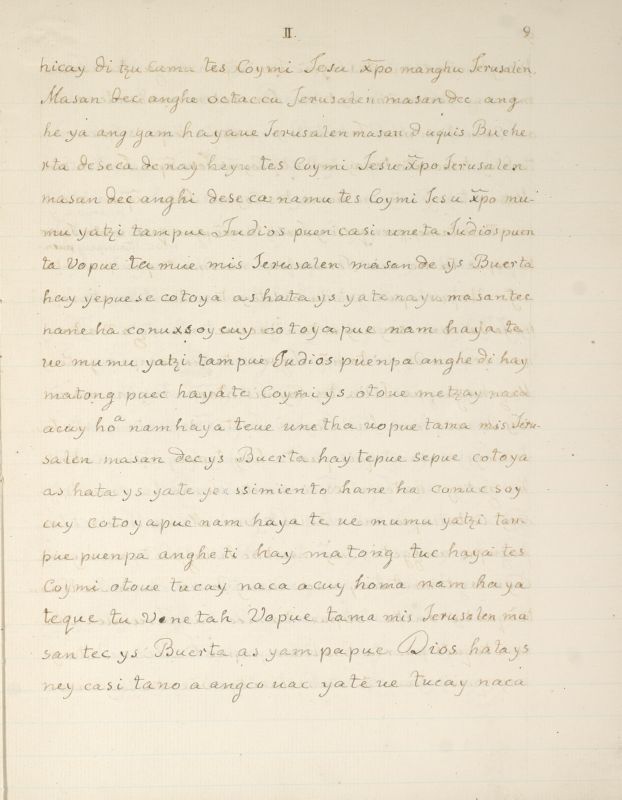 II. 9
hicay di tzu camu tes Coymi Jesu x̃po manghu Jerusalen.
Masan dec anghe octaccu Jerusalen masan dec ang
he ya ang gam hayaue Jerusalen masan duquis Buehe
rta deseca de nay heyu tes Coymi Jesu x̃po Jerusalen
masan dec anghi deseca namu tes Coymi Jesu x̃po mu-
mu yatzi tampue Judios puen casi uneta Judios puen
ta Vopue ta mue mis Jerusalen masan de ys Buerta
hay yepue se cotoya as hata ys yate nayu masantec
nane ha conuxsoy cuy cotoyapue nam haya te
ue mumu yatzi tampue Judios puenpa anghe di hay
matong puec hayate Coymi ys otoue metzay naca
acuy hoa nam haya teue unetha uopue tama mis Jeru-
salen masan dec ys Buerta hay tepue sepue cotoya
as hata ys yate ssimiento hane ha conuc soy
cuy cotoyapue nam haya te ue mumu yatzi tam-
pue puenpa anghe ti hay matong tuc haya tes
Coymi otoue tucay naca acuy homa nam haya
teque tu Vnetah Vopue tama mis Jerusalen ma
san tec ys Buerta as yam papue Dios hatays
ney casi tano a angco uac yate ue tucay naca